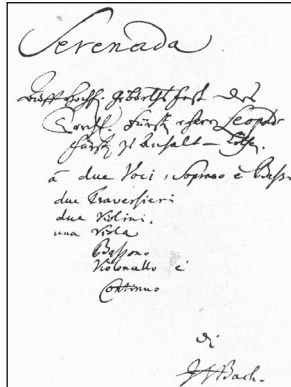 Serenada
Hochf. Geburths Fest des
Fürst Leopold
Fürst zu Anhalt-Cöthen.
à due Voci, Soprano è Basso
due Traversieri
due Violini.
una Viola
Bassono
Violoncello è
Continuo
di
JSBach.